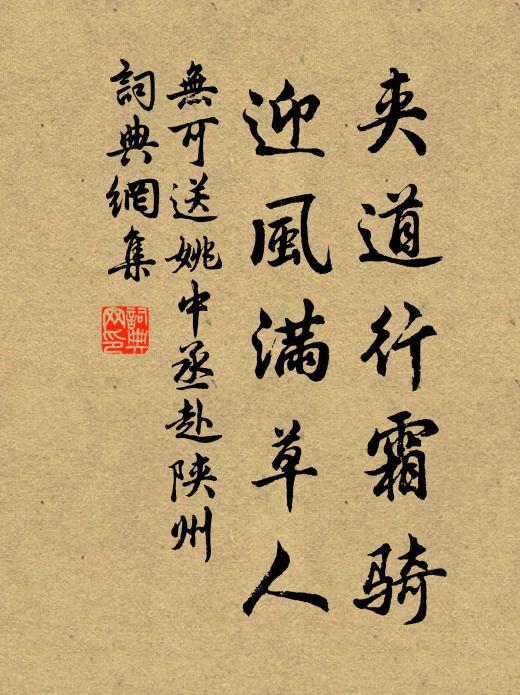 夹道行霜骑
迎風满草人
無可送姚中丞赴陝州
詞典網集
詞典网印